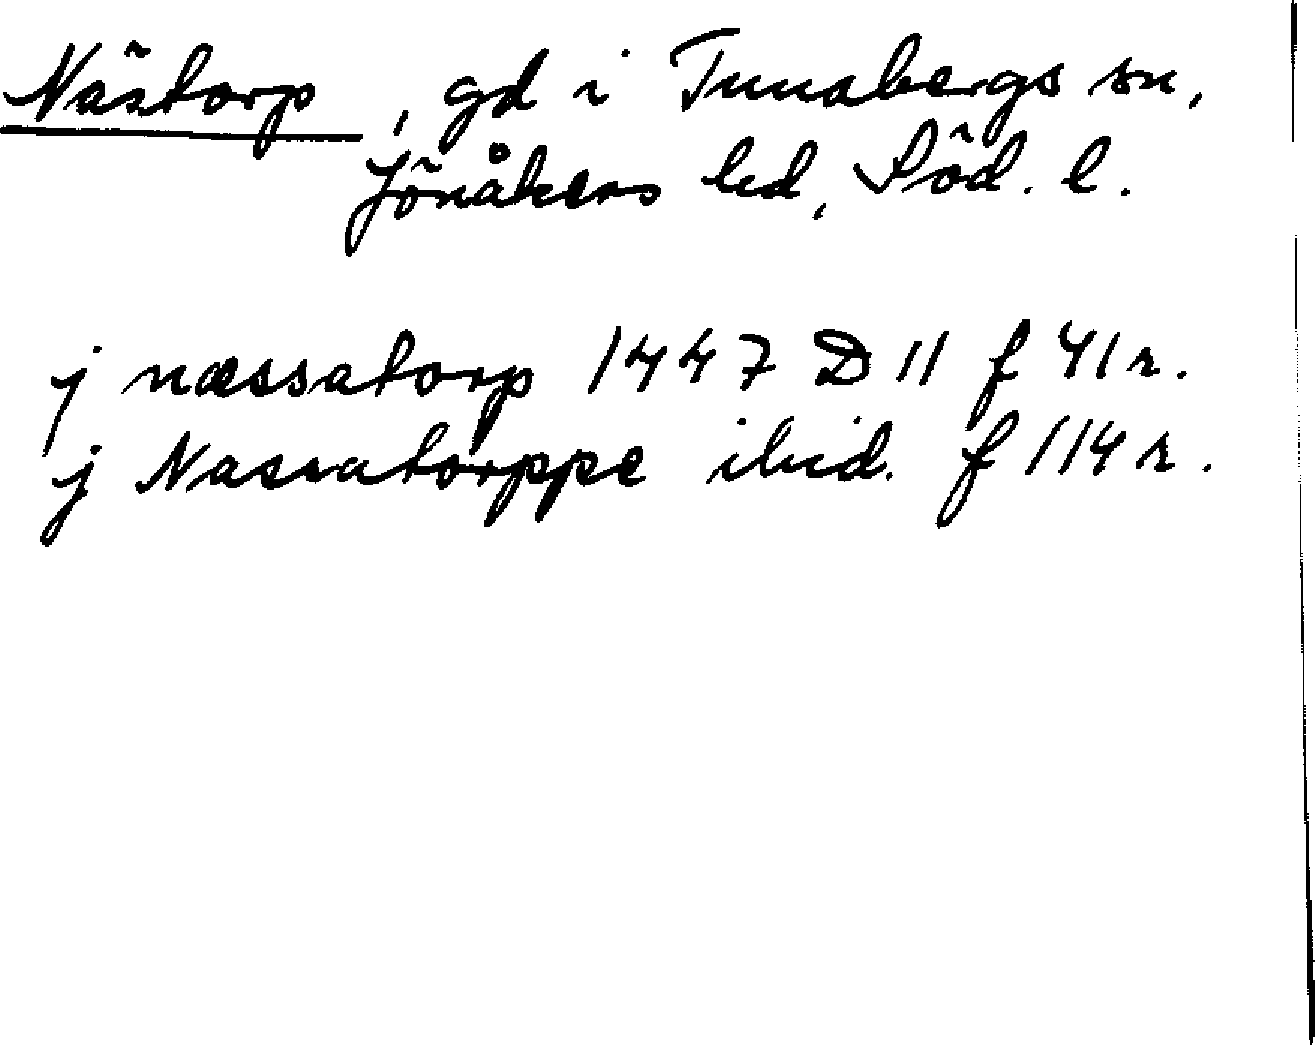 Nästorp, gd i Tunabergs sn,
Jönåkers hd, Söd. l.
j næssatorp 1447 D 11 f 41 r.
j Nassatorppe ibid. f 114 r.